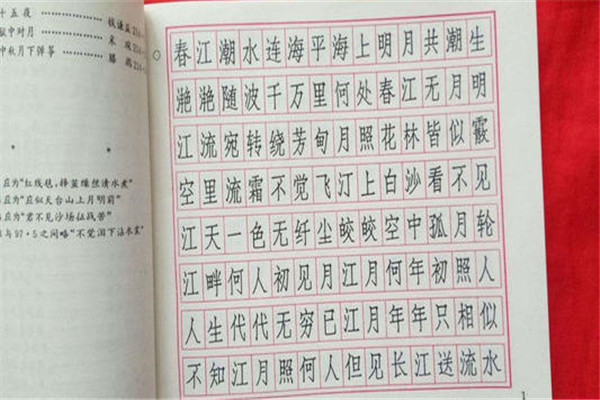 十五夜 钱谦益
狱中对月 宋琬
中秋月下弹筝
应为“红线毯，择茧缫丝清水煮”
应为“应似天台山上月明前”
应为“君不见沙场征战苦”
与97·5之间略“不觉泪下沾衣裳”
春江潮水连海平海上明月共潮生
滟滟随波千万里何处春江无月明
江流宛转绕芳甸月照花林皆似霰
空里流霜不觉飞汀上白沙看不见
江天一色无纤尘皎皎空中孤月轮
江畔何人初见月江月何年初照人
人生代代无穷已江月年年只相似
不知江月照何人但见长江送流水
1